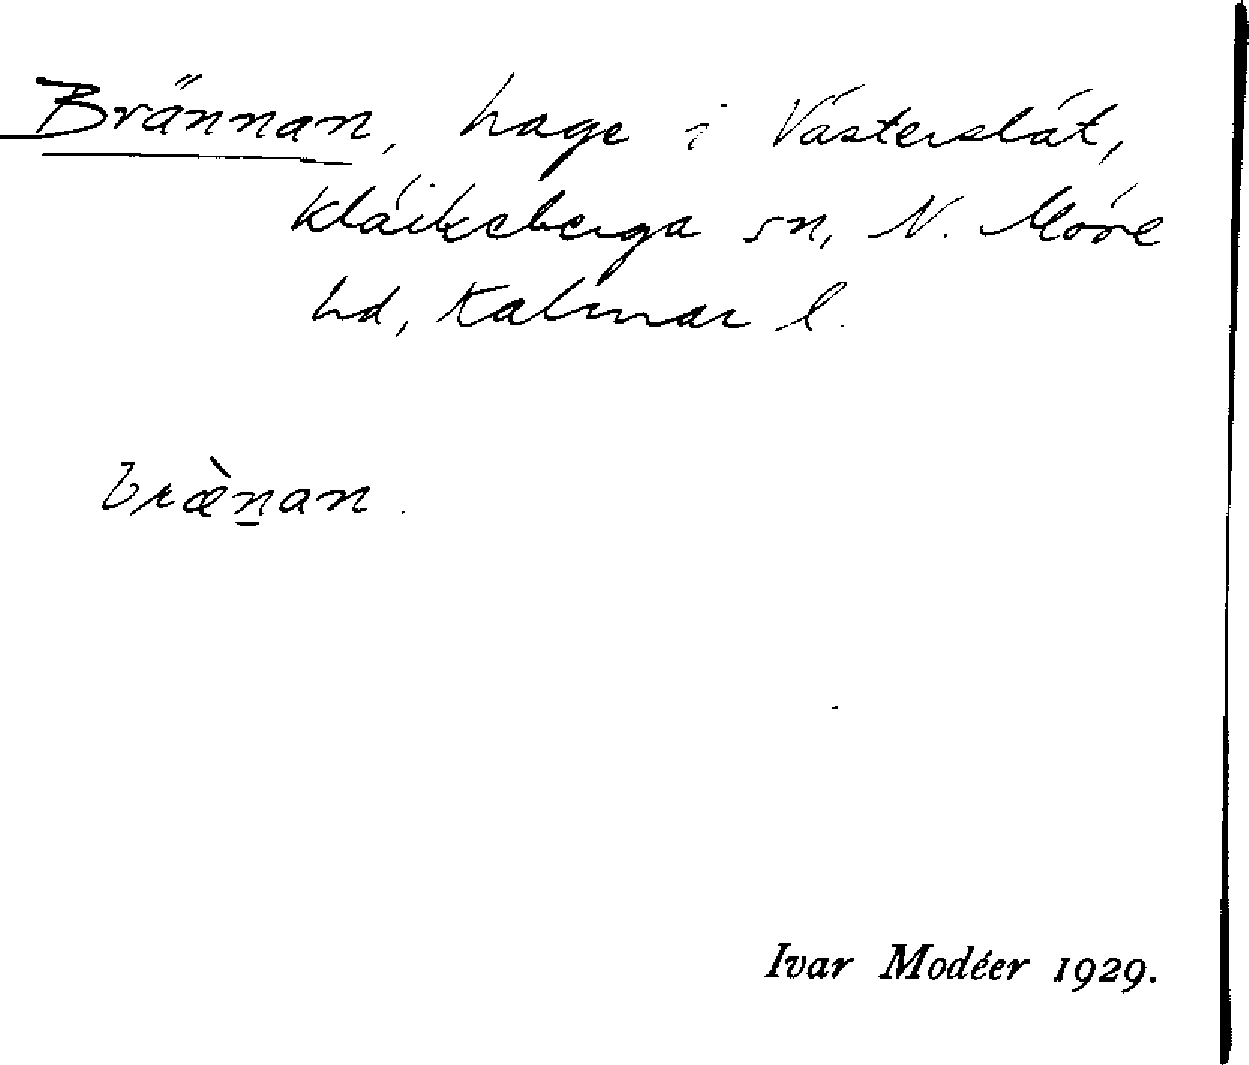 Brännan, hage i Västerslät,
Kläckeberga sn, N. Möre
hd, Kalmar l.
bræ̀n̲an.
Ivar Modéer 1929.